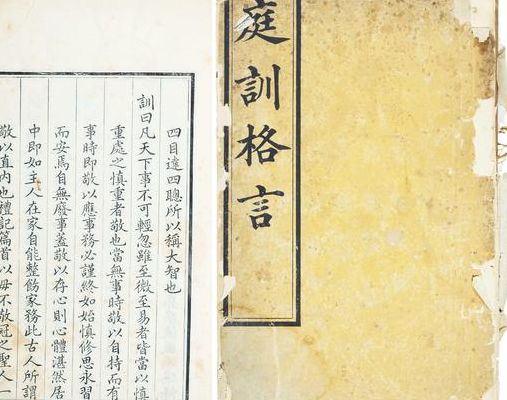 庭訓格言
四目達四聰所以稱大智也
訓曰凡天下事不可輕忽雖至微至易者皆當以慎
重處之慎重者敬也當無事時敬以自持而有
事時即敬以應事務必謹終如始慎修思永習
而安焉自無廢事蓋敬以存心則心體湛然居
中即如主人在家自能整飭家務此古人所謂
敬以直內也禮記篇首以毋不敬冠之聖人一